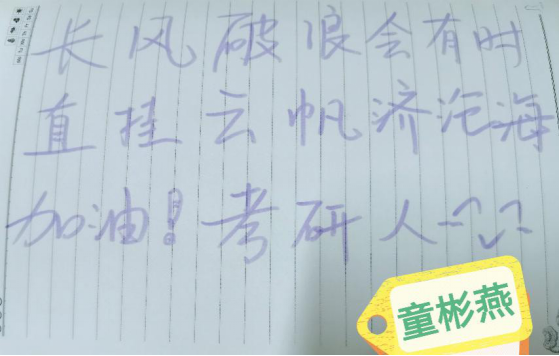 长风破浪会有时
直挂云帆济沧海
加油!考研人
童彬燕